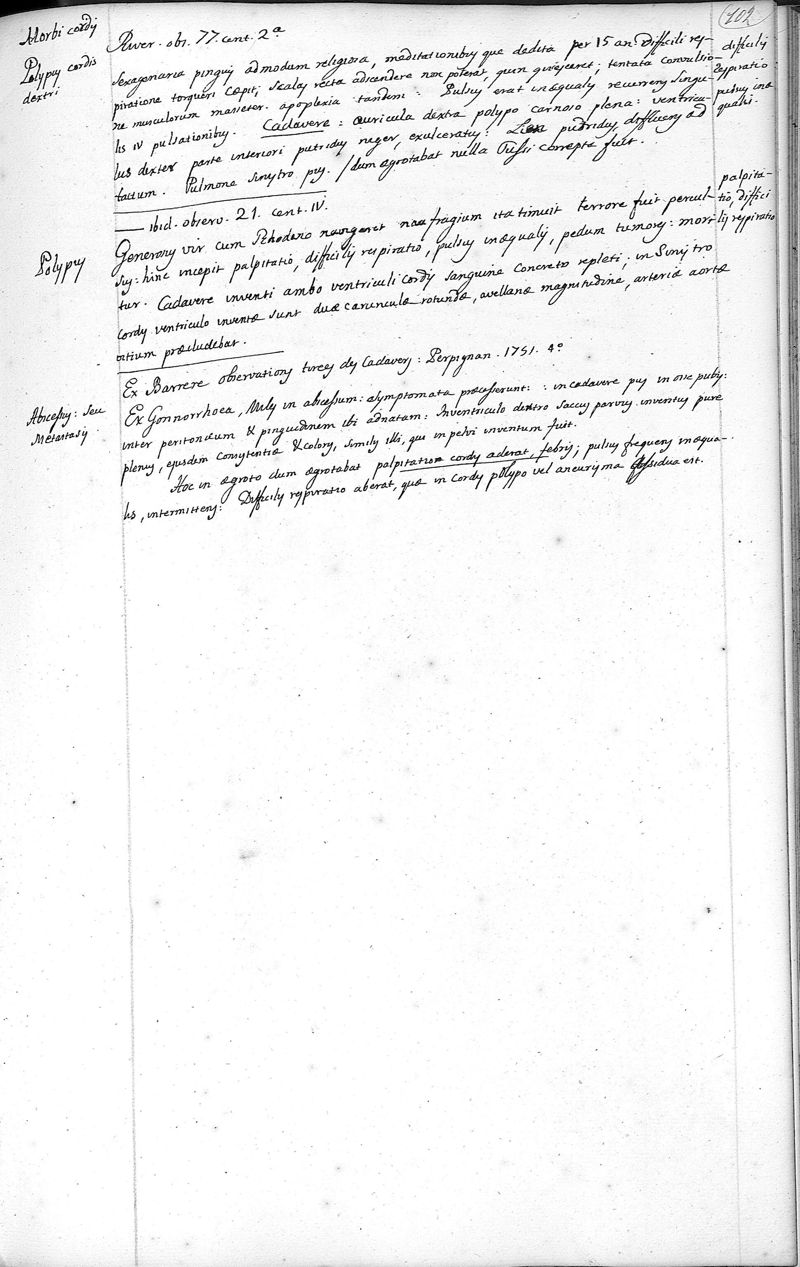 102
Morbi cordis
Polypus cordis
dextri
River. obs. 77. cent. 2a
Sexagenaria pinguis admodum religiosa, meditationibus que dedita per 15 an: difficili res-
piratione torqueri cœpit; scalas recta adscendere non poterat, quin quiesceret; tentata convulsio-
ne musculorum masseter. apoplexia tandem: Pulsus erat inæqualis recurrens singu-
lis IV pulsationibus. Cadavere: auricula dextra polypo carnoso plena: ventricu-
lus dexter parte interiori putridus niger, exulceratus: Lien putridus, diffluens ad
tactum. Pulmone sinistro pus. / dum ægrotabat nulla Tussi correpta fuit.
difficilis
respiratio
pulsus inæ
qualis.
— ibid. observ. 21. cent. IV.
Polypus
Generosus vir cum Rhodano navigaret naufragium ita timuit terrore fuit percul-
sus: hinc incepit palpitatio, difficilis respiratio, pulsus inæqualis, pedum tumores: mori-
tur. Cadavere inventi ambo ventriculi cordis sanguine concreto repleti; in sinistro
cordis ventriculo inventæ sunt duæ carunculæ rotundæ, avellanæ magnitudine, arteriæ aortæ
ostium præcludebat.
palpita-
tio, diffici
lis respiratio
Ex Barrere observations tirees des Cadavers: Perpignan. 1751. 4o
Abscessus: seu
Metastasis
Ex Gonnorrhoea, Miles in abscessum: asymptomata præcesserunt: : in cadavere pus in osse pubis:
inter peritonæum & pinguedinem ibi adnatam: In ventriculo dextro saccus parvus inventus pure
plenus, ejusdem consistentiæ & coloris, similis illi, qui in pelvi inventum fuit.
Hoc in ægroto dum ægrotabat palpitation cordis aderat, febris; pulsus frequens inæqua-
lis, intermittens: Difficilis respiratio aberat, quæ in cordis polypo vel aneurisma assidua est.